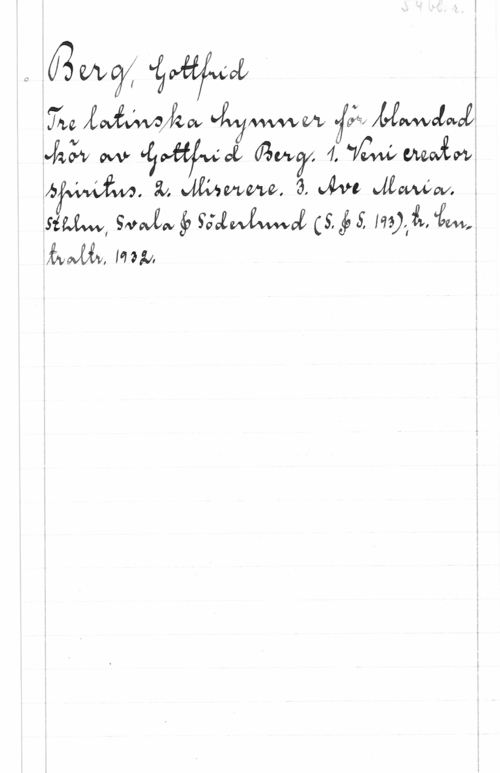 Berg, Gottfrid
Tre latinska hymner för blandad
kör av Gottfrid Berg. 1. Veni creator
spiritus. 2. Miserere. 3. Ave Maria.
Sthlm, Svala & Söderlund (S. & S. 193); tr. Cen-
traltr. 1932.